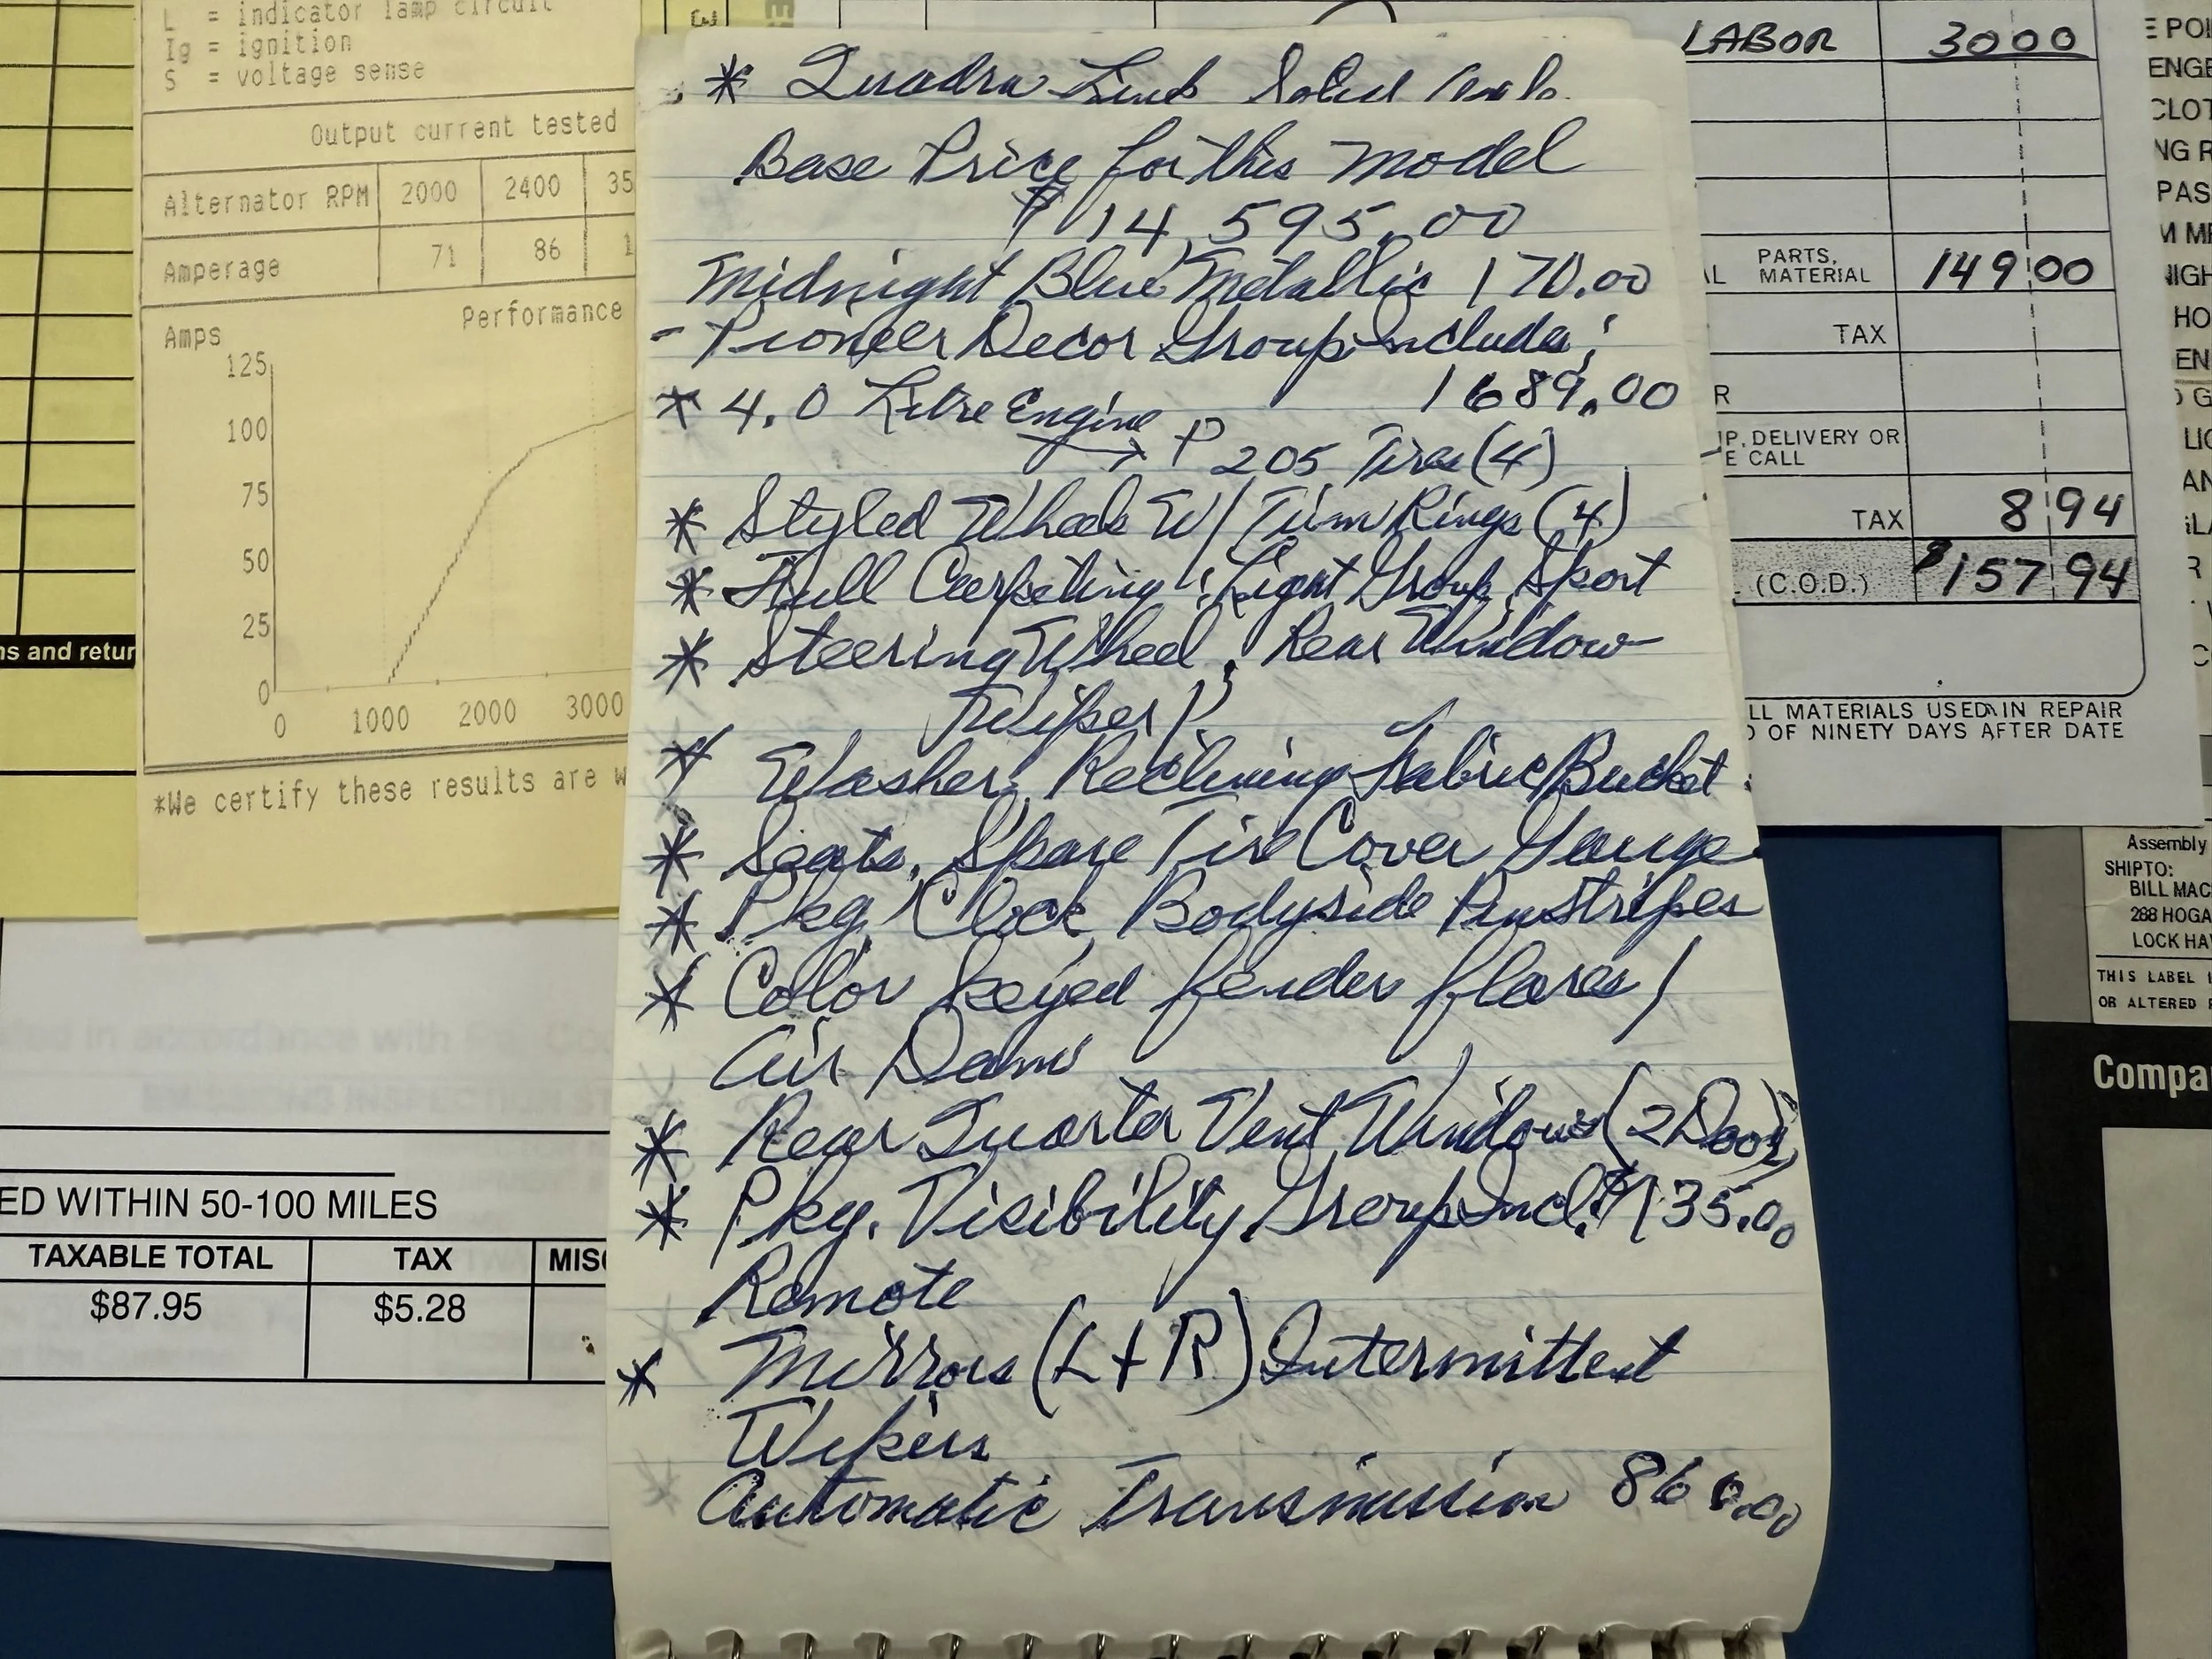 L = indicator lamp circuit
Ig = ignition
S = voltage sense
Output current tested
Alternator RPM 2000 2400 35
Amperage 71 86 1
Performance
Amps
125
100
75
50
25
0
0 1000 2000 3000
*We certify these results are w
ns and retur
ED WITHIN 50-100 MILES
TAXABLE TOTAL TAX MISC
$87.95 $5.28
* Quadra Link Solid
Base Price for this model
$14,595.00
Midnight Blue Metallic 170.00
- Pioneer Decor Group Includes;
* 4.0 Litre Engine 1689.00
→ P 205 Tires (4)
* Styled Wheels W/Trim Rings (4)
* Full Carpeting, Light Group, Sport
* Steering Wheel, Rear Window
Wiper/
* Washer, Reclining Fabric Bucket
* Seats, Spare Tire Cover Gauge
* Pkg, Clock, Bodyside Pinstripes
* Color keyed fender flares/
Air Dam
* Rear Quarter Vent Windows (2 Door)
* Pkg. Visibility Group Incl: $135.00
Remote
* Mirrors (L + R) Intermittent
Wipers
Automatic Transmission 860.00
LABOR 3000
PARTS, MATERIAL 149 00
TAX
R
IP, DELIVERY OR
E CALL
TAX 8 94
(C.O.D.) $157 94
LL MATERIALS USED IN REPAIR
D OF NINETY DAYS AFTER DATE
E POI
ENGE
CLOT
NG R
PAS
M MI
HO
EN
Assembly
SHIPTO:
BILL MAC
288 HOGA
LOCK HA
THIS LABEL I
OR ALTERED
Compa